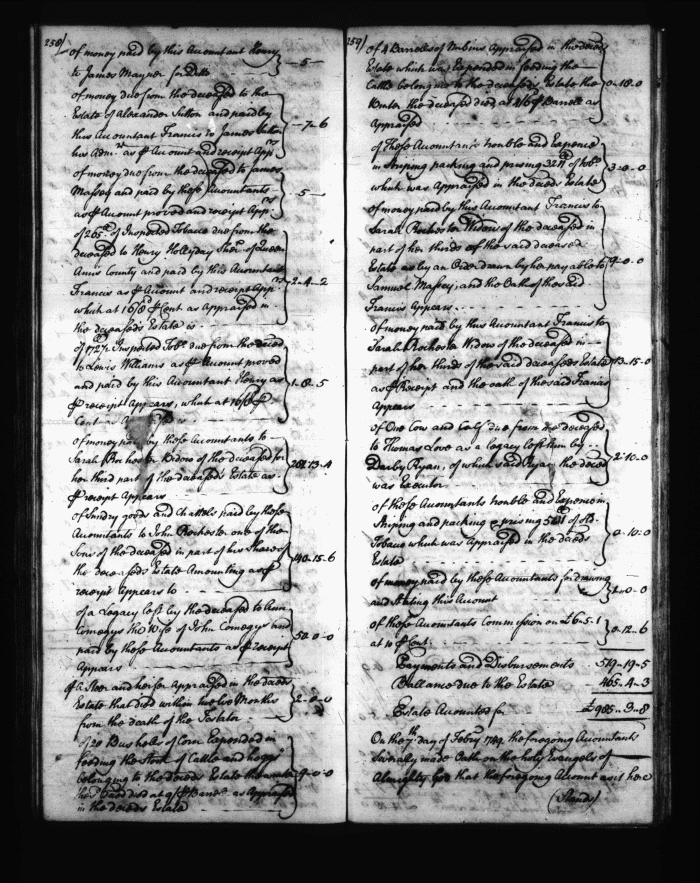 258/
of money paid by this Accountant Henry
to James Mayner for Ditto
- 5 -
of money due from the deceased to the
Estate of Alexander Sutton and paid by
this Accountant Francis to James Sutton
his Admr. as Account and receipt Appr.
- 7 - 6
of money due from the deceased to James
Massey and paid by these Accountants
as Account proved and receipt Appr.
- 5 -
of 265 lb of Inspected Tobacco due from the
deceased to Henry Hollyday Sher. of Queen
Anns County and paid by this Accountant
Francis as Account and receipt App.
which at 16/8 Cent as Appraised in
the deceaseds Estate is
2 - 4 - 2
of Inspected Tobo. due from the deced
to Lewis Williams as Account proved
and paid by this Accountant Henry as
receipt Appears, which at 16/8
Cent as
1 - 8 - 5
of money paid by these Accountants to
Sarah Rochester Widow of the deceased for
her third part of the deceaseds Estate as
receipt Appears
13 - 4
of Sundry goods and Chattels paid by these
Accountants to John Rochester one of the
Sons of the deceased in part of his Share of
the deceaseds Estate Amounting as
receipt Appears to
140 - 15 - 6
of a Legacy left by the deceased to Ann
Comegys the Wife of John Comegys and
paid by these Accountants as receipt
Appears
50 - 0 - 0
of a Steer and heifer Appraised in the deceds
Estate that died within twelve Months
from the death of the Testator
2 - 0 - 0
of 20 Bushells of Corn Expended in
feeding the Stock of Cattle and hoggs
belonging to the deceds Estate the
he died at 9/ Barrel as Appraised
in the deceds Estate
9 - 0 - 0
259/
of 4 Barrells of Nubins Appraised in the deced
Estate which was Expended in feeding the
Cattle belonging to the deceaseds Estate the
Winter the deceased died at 4/6 Barrel as
Appraised
0 - 18 - 0
of these Accountants trouble and Expence
in Striping packing and prising of tobo.
which was Appraised in the deceds Estate
3 - 0 - 0
of money paid by this Accountant Francis to
Sarah Rochester Widow of the deceased in
part of her thirds of the said deceased
Estate as by an Order drawn by her payable to
Samuel Massey, and the Oath of the said
Francis Appears
9 - 0 - 0
of money paid by this Accountant Francis to
Sarah Rochester Widow of the deceased in
part of her thirds of the said deceaseds Estate
as Receipt and the oath of the said Francis
Appears
13 - 15 - 0
of One Cow and Calf due from the deceased
to Thomas Love as a Legacy left him by
Darby Ryan, of which said Ryan the deced
was Executor
2 - 10 - 0
of these Accountants trouble and Expence in
Striping and packing & prising of
Tobacco which was Appraised in the deceds
Estate
0 - 10 - 0
of money paid by these Accountants for drawing
and Stating this Account
- 0 - 0
of these Accountants Commission on £6 - 5 - 1
at 10 Cent
0 - 12 - 6
Payments and Disbursements 519 - 19 - 5
Ballance due to the Estate 465 - 4 - 3
Estate Accounted for £985 - 3 - 8
On the 7th day of Febry. 1749. the foregoing Accountants
Severally made Oath on the holy Evangels of
Almighty God that the foregoing Account as is here
(Stands)